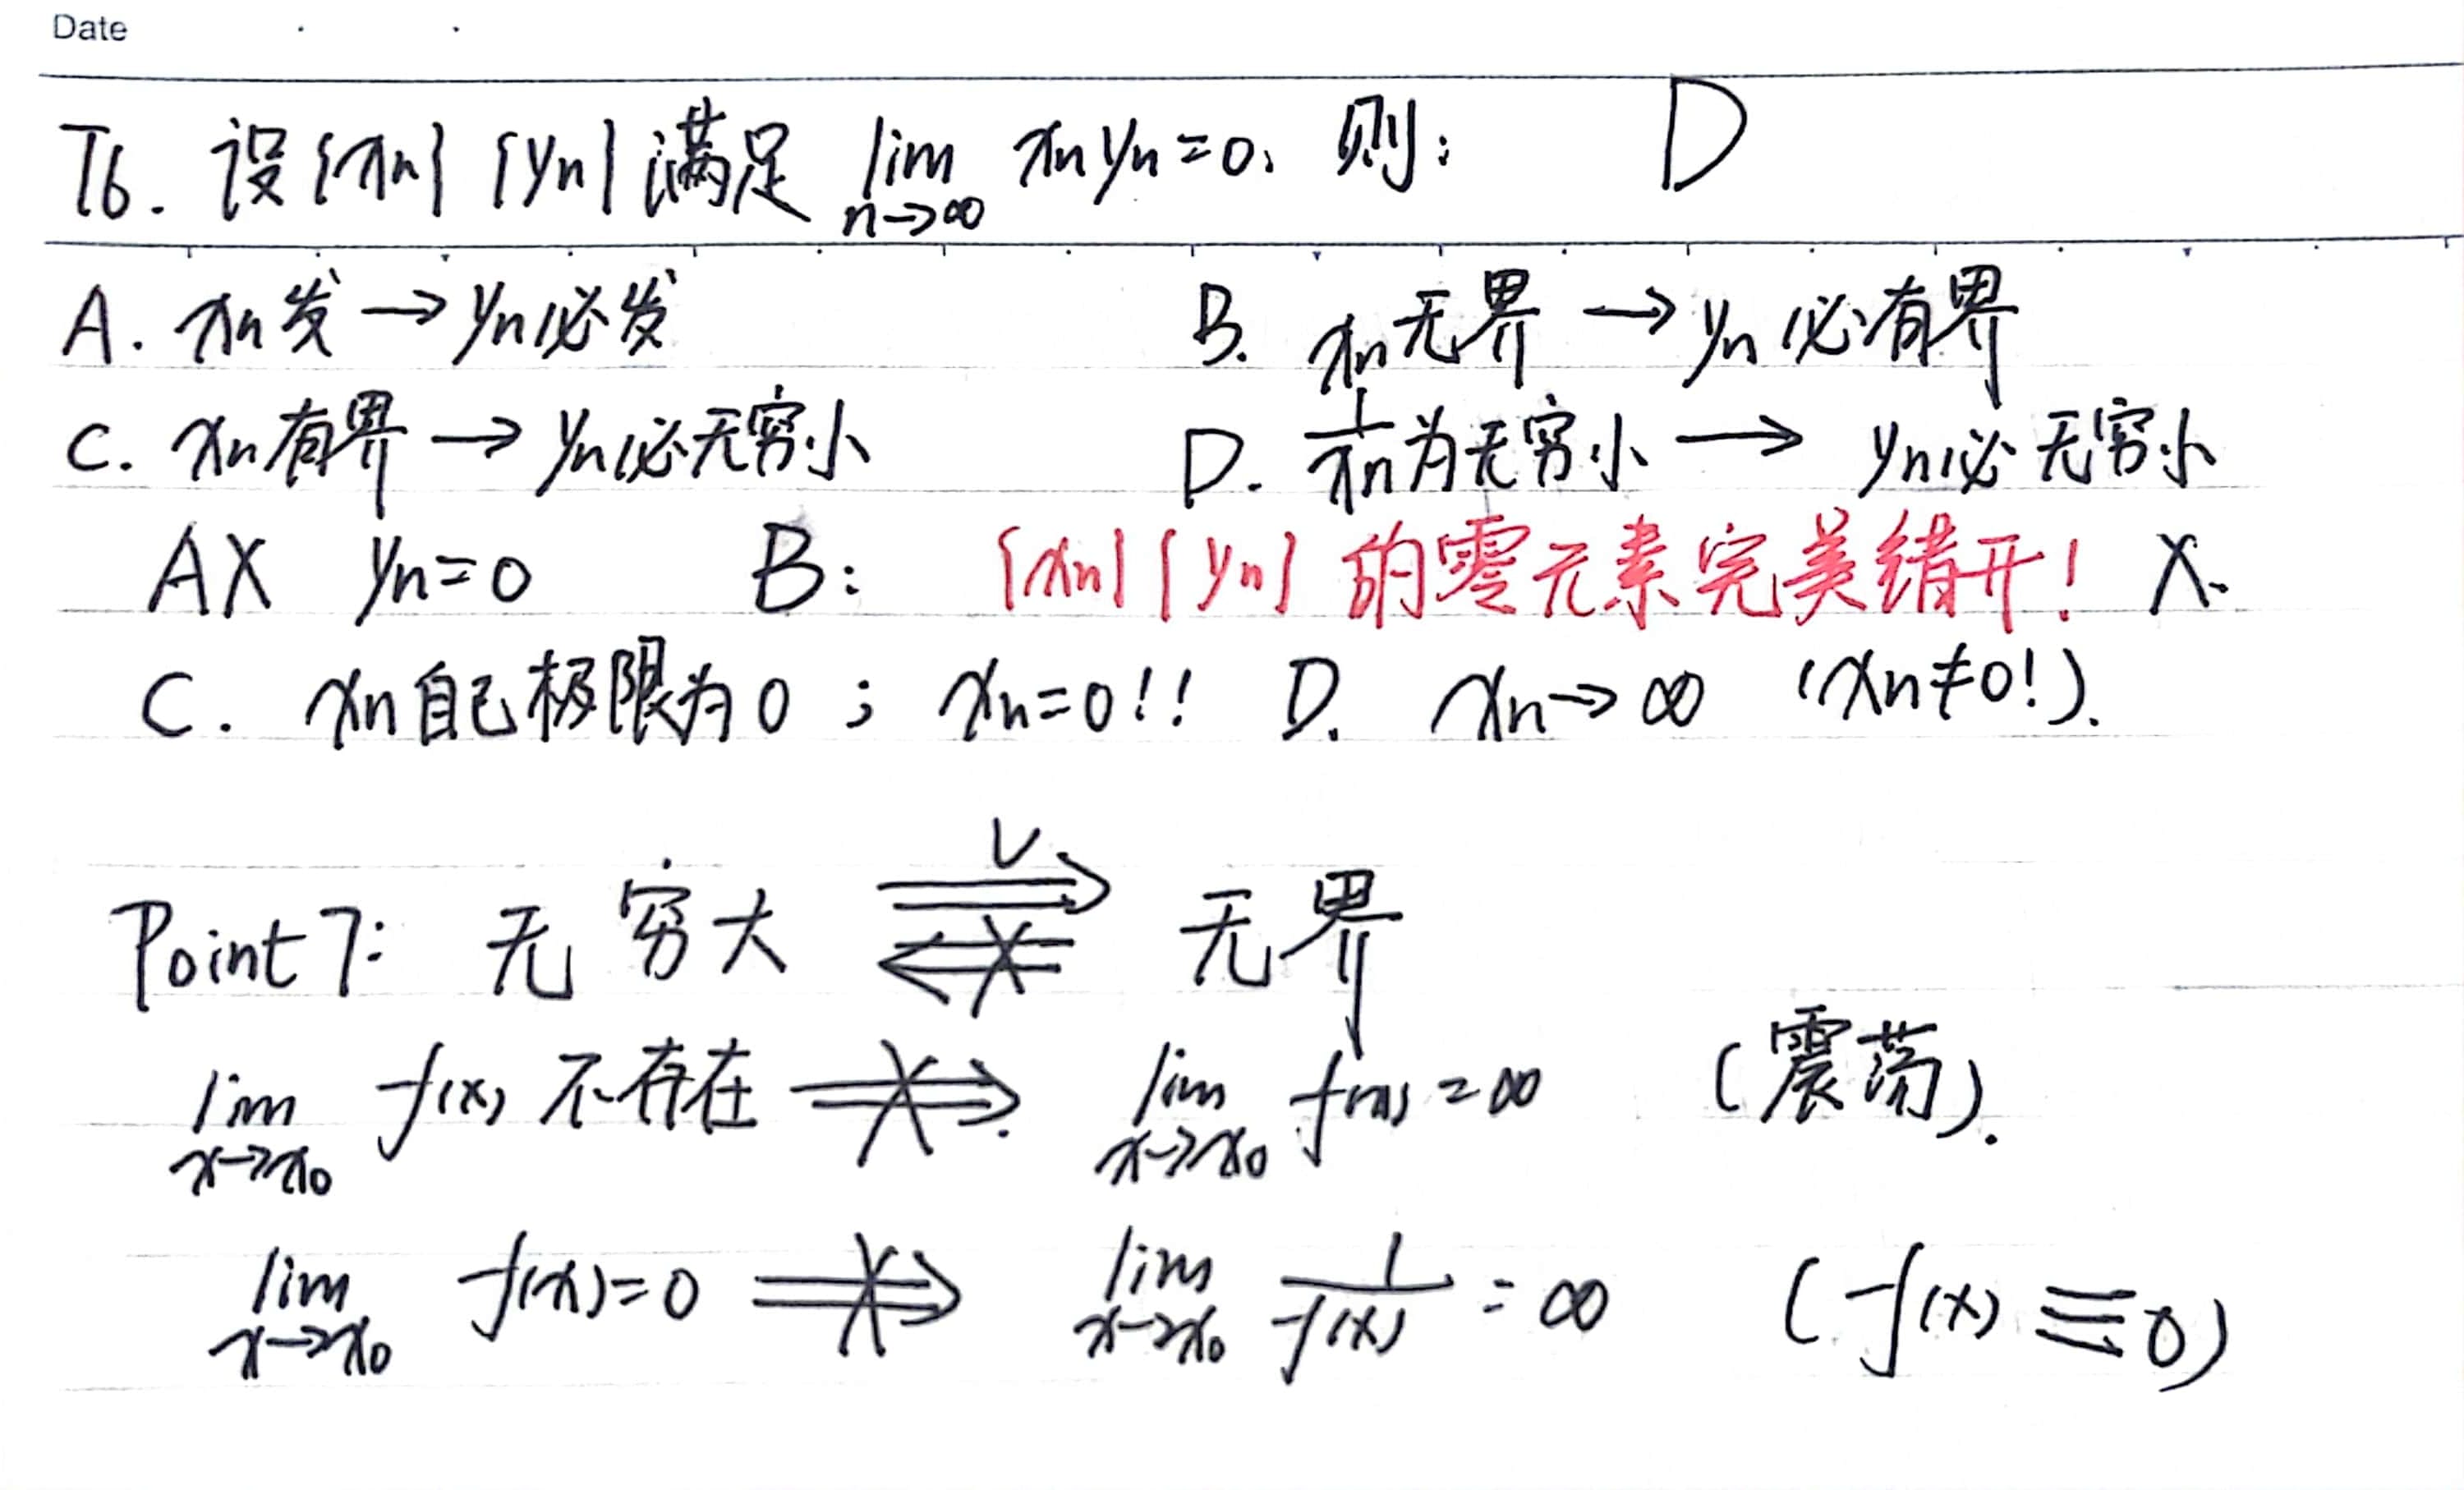 Date
T6. 设{xn} {yn}满足 lim n→∞ xnyn=0, 则: D
A. xn发→yn必发 B. xn无界→yn必有界
C. xn有界→yn必无穷小 D. 1/xn为无穷小→yn必无穷小
AX yn=0 B: {xn}{yn}的零元素完美错开! X.
C. xn自己极限为0; xn=0!! D. xn→∞ (xn≠0!).
Point7: 无穷大 ⇒ √ ⇐ X 无界
lim x→x0 f(x)不存在 ⇏ lim x→x0 f(x)=∞ (震荡).
lim x→x0 f(x)=0 ⇏ lim x→x0 1/f(x)=∞ (f(x)≡0)